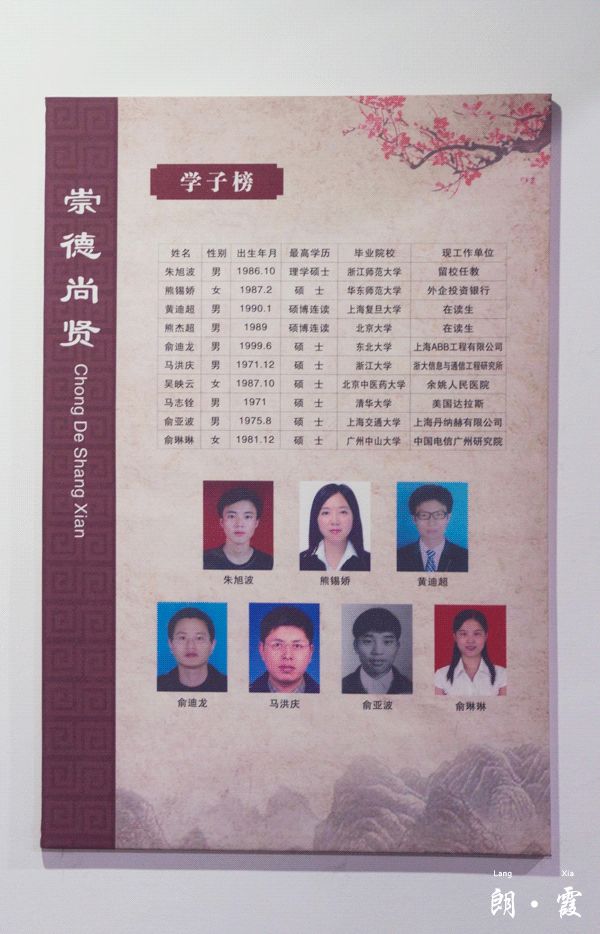 崇德尚贤
Chong De Shang Xian
学子榜
姓名 性别 出生年月 最高学历 毕业院校 现工作单位
朱旭波 男 1986.10 理学硕士 浙江师范大学 留校任教
熊锡娇 女 1987.2 硕 士 华东师范大学 外企投资银行
黄迪超 男 1990.1 硕博连读 上海复旦大学 在读生
熊杰超 男 1989 硕博连读 北京大学 在读生
俞迪龙 男 1999.6 硕 士 东北大学 上海ABB工程有限公司
马洪庆 男 1971.12 硕 士 浙江大学 浙大信息与通信工程研究所
吴映云 女 1987.10 硕 士 北京中医药大学 余姚人民医院
马志铨 男 1971 硕 士 清华大学 美国达拉斯
俞亚波 男 1975.8 硕 士 上海交通大学 上海丹纳赫有限公司
俞琳琳 女 1981.12 硕 士 广州中山大学 中国电信广州研究院
朱旭波 熊锡娇 黄迪超
俞迪龙 马洪庆 俞亚波 俞琳琳
Lang Xia
朗·霞